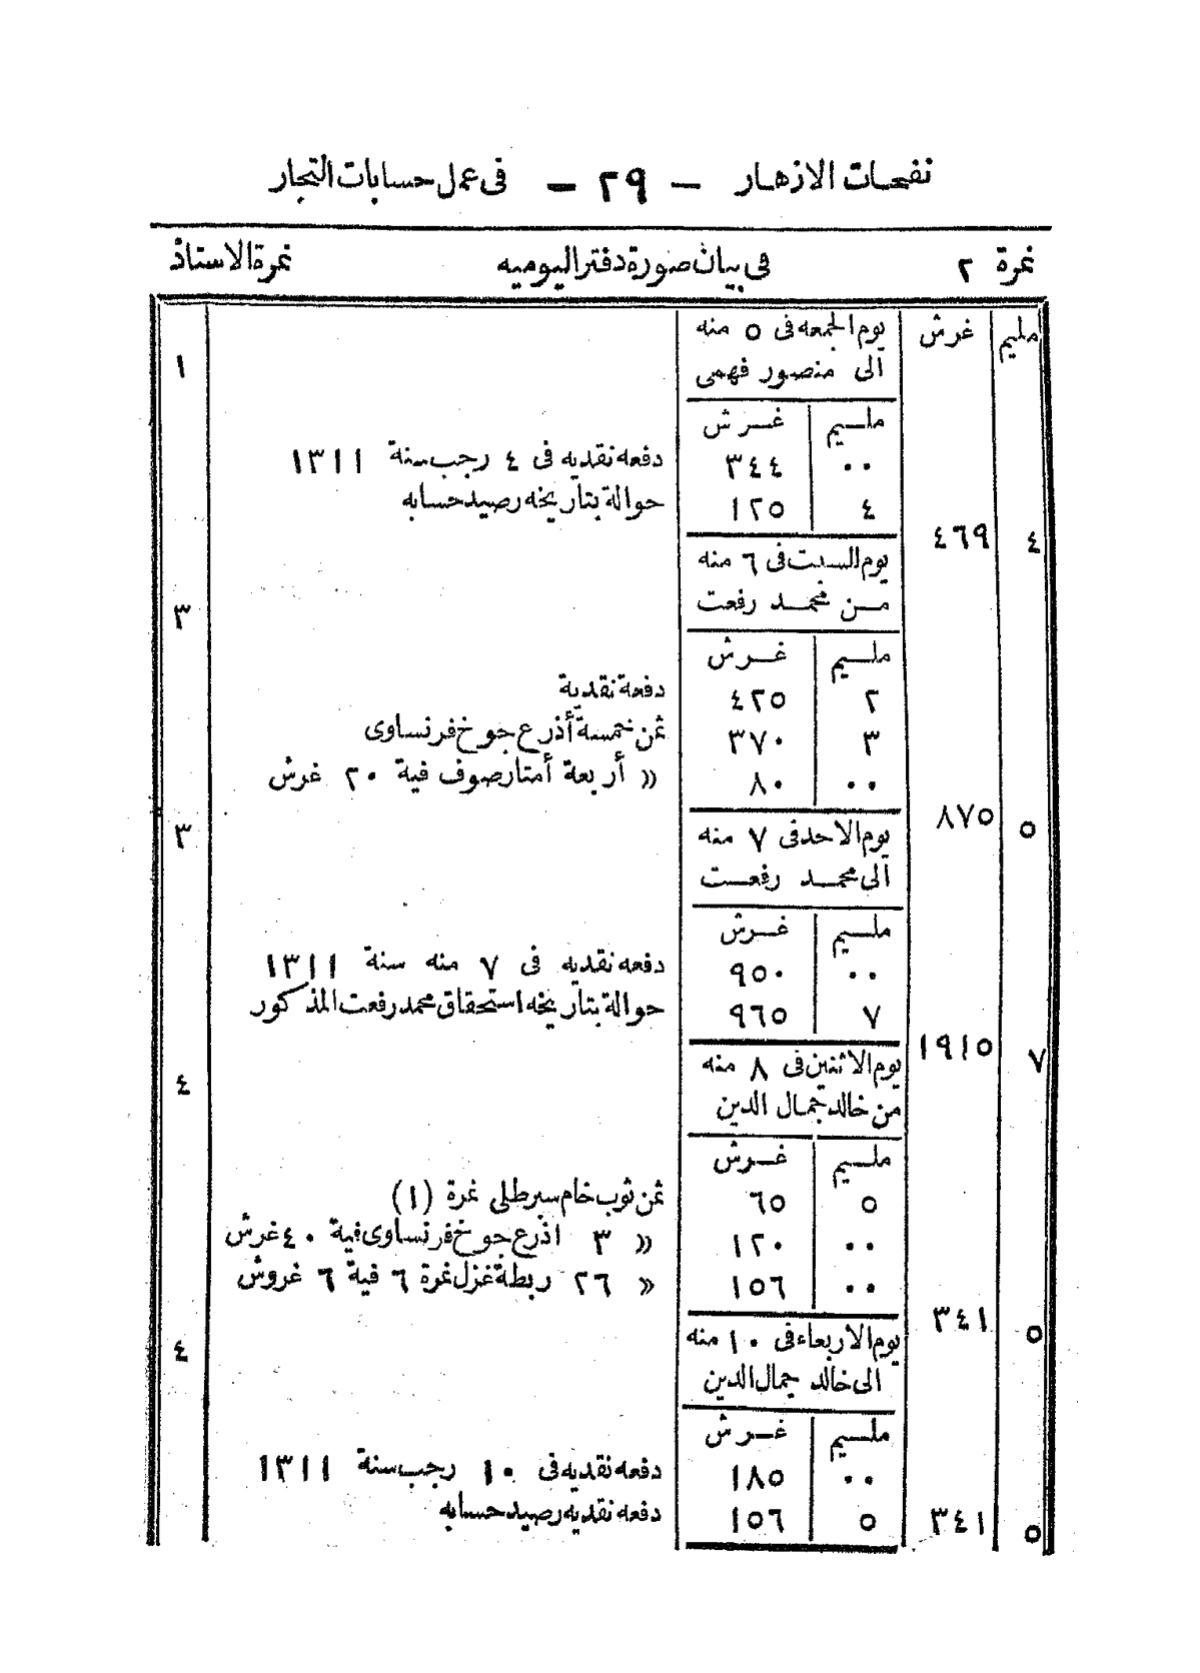 نفحات الازهار — ٢٩ — فى عمل حسابات التجار
نمرة ٢ فى بيان صورة دفتر اليوميه نمرة الاستاذ
مليم غرش يوم الجمعه فى ٥ منه
الى منصور فهمى ١
مليم غرش
٠٠ ٣٤٤ دفعه نقديه فى ٤ رجب سنة ١٣١١
٤ ١٢٥ حوالة بتاريخه رصيد حسابه
٤ ٤٦٩
يوم السبت فى ٦ منه
من محمد رفعت ٣
مليم غرش
٢ ٤٢٥ دفعة نقدية
٣ ٣٧٠ ثمن خمسة أذرع جوخ فرنساوى
٠٠ ٨٠ » أربعة أمتار صوف فية ٢٠ غرش
٥ ٨٧٥
يوم الاحد فى ٧ منه ٣
الى محمد رفعت
مليم غرش
٠٠ ٩٥٠ دفعه نقديه فى ٧ منه سنة ١٣١١
٧ ٩٦٥ حوالة بتاريخه استحقاق محمد رفعت المذكور
٧ ١٩١٥
يوم الاثنين فى ٨ منه ٤
من خالد جمال الدين
مليم غرش
٥ ٦٥ ثمن ثوب خام سبرطلى نمرة (١)
٠٠ ١٢٠ » ٣ اذرع جوخ فرنساوى فية ٤٠ غرش
٠٠ ١٥٦ » ٢٦ ربطة غزل نمرة ٦ فية ٦ غروش
٥ ٣٤١
يوم الاربعاء فى ١٠ منه ٤
الى خالد جمال الدين
مليم غرش
٠٠ ١٨٥ دفعه نقديه فى ١٠ رجب سنة ١٣١١
٥ ٣٤١ ٥ ١٥٦ دفعه نقديه رصيد حسابه